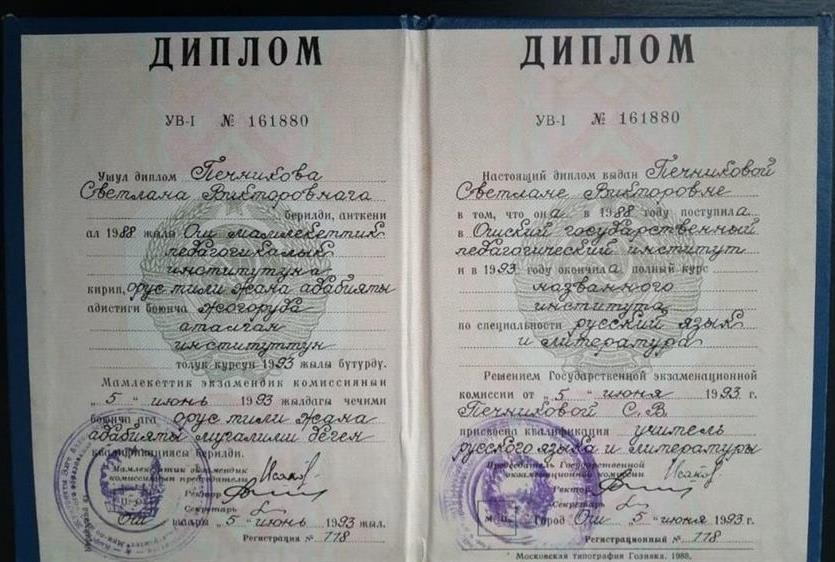 ДИПЛОМ
УВ-I № 161880
Ушул диплом Печникова
Светлана Викторовнага
берилди, анткени
ал 1988 жылы Ош мамлекеттик
педагогикалык
институтуна
кирип, орус тили жана адабияты
адистиги боюнча жогоруда
аталган
институттун
толук курсун 1993 жылы бүтүрдү.
Мамлекеттик экзамендик комиссиянын
„5“ июнь 1993 жылдагы чечими
боюнча ага орус тили жана
адабияты мугалими деген
квалификациясы берилди.
Мамлекеттик экзамендик
комиссиянын председатели
Ректор
Секретарь
Ош шаары „5“ июнь 1993 жыл.
Регистрация № 118
ДИПЛОМ
УВ-I № 161880
Настоящий диплом выдан Печниковой
Светлане Викторовне
в том, что она в 1988 году поступила
в Ошский государственный
педагогический институт
и в 1993 году окончила полный курс
названного
института
по специальности русский язык
и литература
Решением Государственной экзаменационной
комиссии от „5“ июня 1993 г.
Печниковой С.В.
присвоена квалификация учитель
русского языка и литературы
Председатель Государственной
экзаменационной комиссии
Ректор
Секретарь
М.П.
Город Ош „5“ июня 1993 г.
Регистрационный № 118
Московская типография Гознака. 1988.